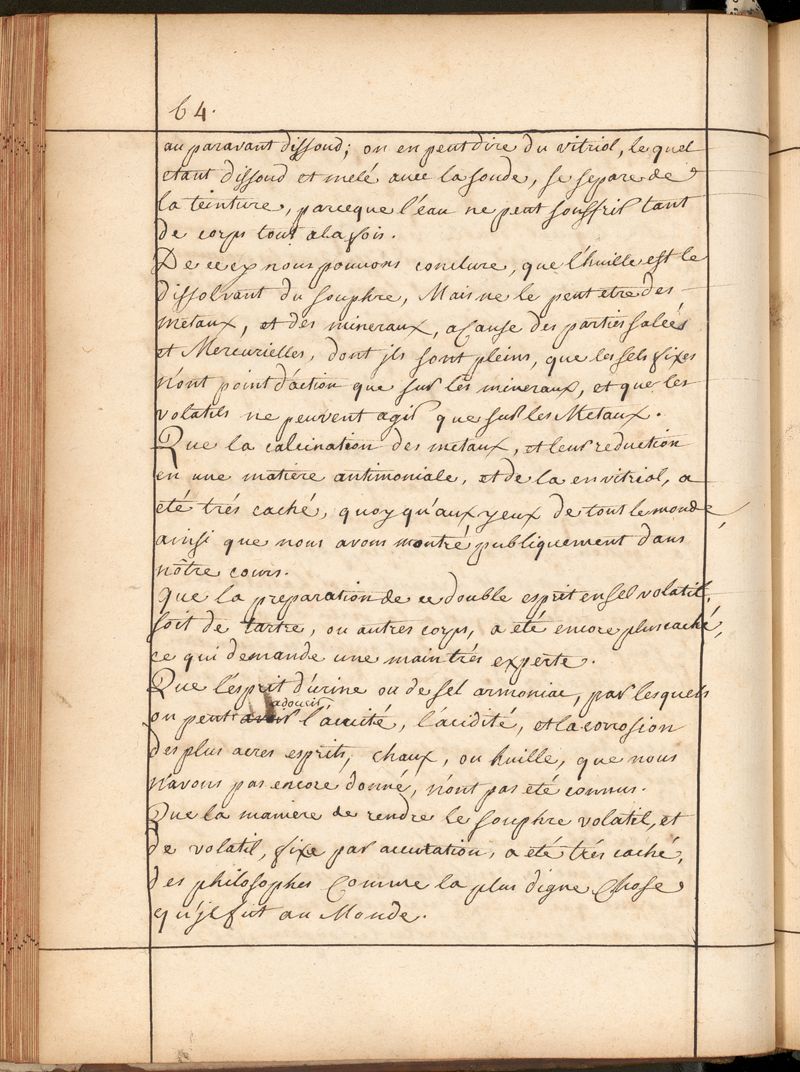 64.
au paravant dissoud; on en peut dire du vitriol, le quel
etant dissoud et melé avec la soude, se separe de
la teinture, parceque l'eau ne peut souffrir tant
de corps tout a la fois.
De cecy nous pouvons conclure, que l'huille est le
dissolvant du souphre, Mais ne le peut etre des
metaux, et des mineraux, a Cause des parties salées
et Mercurielles, dont jls sont pleins, que les sels fixes
n'ont point d'action que sur les mineraux, et que les
volatils ne peuvent agir que sur les Metaux.
Que la calcination des metaux, et leur reduction
en une matiere antimoniale, et de la en vitriol, a
eté trés caché, quoy qu'aux yeux de tout le monde
ainsi que nous avons montré publiquement dans
nôtre cours.
que la preparation de ce double esprit en sel volatil,
soit de tartre, ou autres corps, a eté encore plus caché,
ce qui demande une main trés experte.
Que l'esprit d'urine ou de sel armoniac, par lesquels
adoucir
on peut l'acuité, l'acidité, et la corrosion
des plus acres esprits, chaux, ou huille, que nous
n'avons pas encore donné, n'ont pas eté connus.
Que la maniere de rendre le souphre volatil, et
de volatil, fixe par acuitation, a eté trés caché,
des philosophes Comme la plus digne Chose
qu'jl fut au Monde.